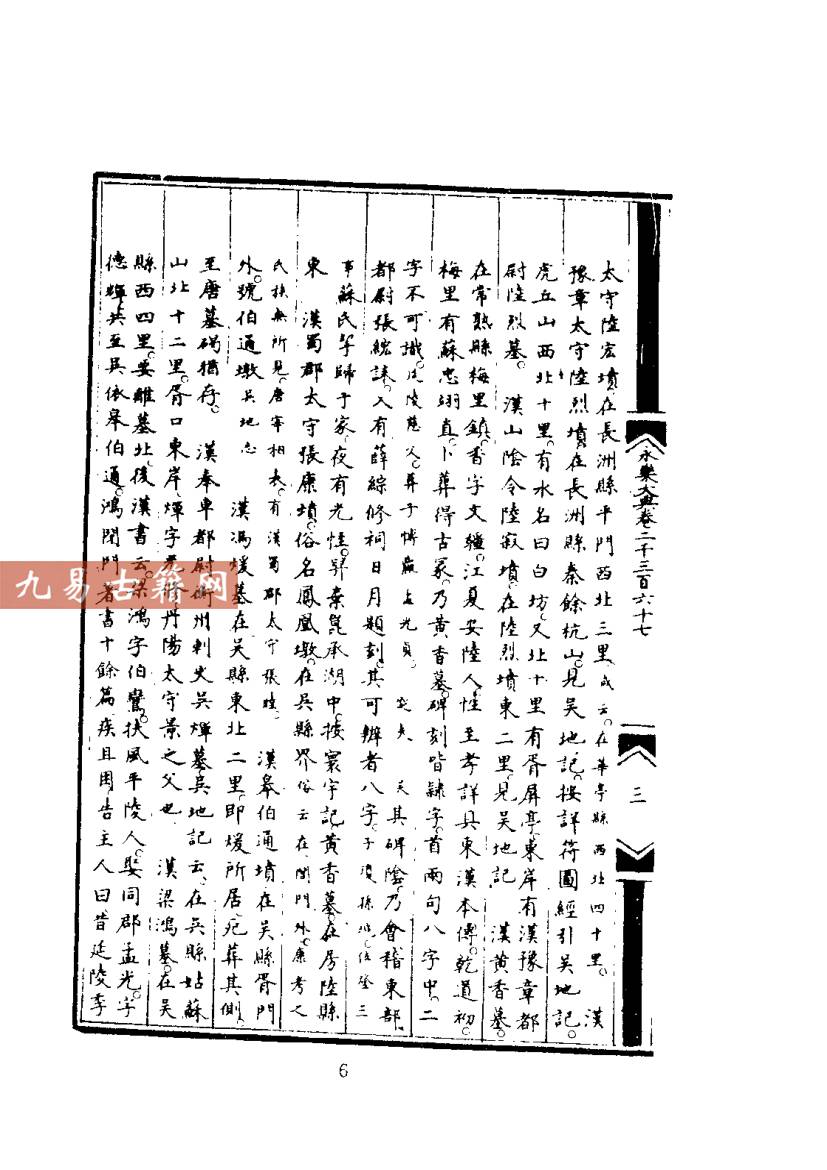 永樂大典卷二千三百六十七
三
太守陸宏墳在長洲縣平門西北三里或云在華亭縣西北四十里 漢
豫章太守陸烈墳在長洲縣秦餘杭山見吳地記按詳符圖經引吳地記
虎丘山西北十里有水名曰白坊又北十里有胥屏亭東岸有漢豫章都
尉陸烈墓 漢山陰令陸寂墳在陸烈墳東二里見吳地記 漢黃香墓
在常熟縣梅里鎮香字文彊江夏安陸人性至孝詳具東漢本傳乾道初
梅里有蘇忠翊直卜葬得古冢乃黃香墓碑刻皆隸字首兩句八字中二
字不可識 其碑陰乃會稽東部
都尉張紞誄又有薛綜修祠日月題刻其可辨者八字 三
事蘇氏 歸于家夜有光怪 棄 承湖中按寰宇記黃香墓在房陵縣
東 漢蜀郡太守張康墳俗名鳳凰墩在吳縣界俗云在閶門外康考之
氏族無所見唐宰相表有漢蜀郡太守張睦 漢皋伯通墳在吳縣胥門
外號伯通墩吳地志 漢馮煖墓在吳縣東北二里即煖所居宛葬其側
至唐墓碣猶存 漢奉車都尉衢州刺史吳煇墓吳地記云在吳縣姑蘇
山北十二里胥口東岸煇字 丹陽太守景之父也 漢梁鴻墓在吳
縣西四里要離墓北後漢書云梁鴻字伯鸞扶風平陵人娶同郡孟光字
德耀共至吳依皋伯通鴻閉門著書十餘篇疾且困告主人曰昔延陵季
九易古籍网
6